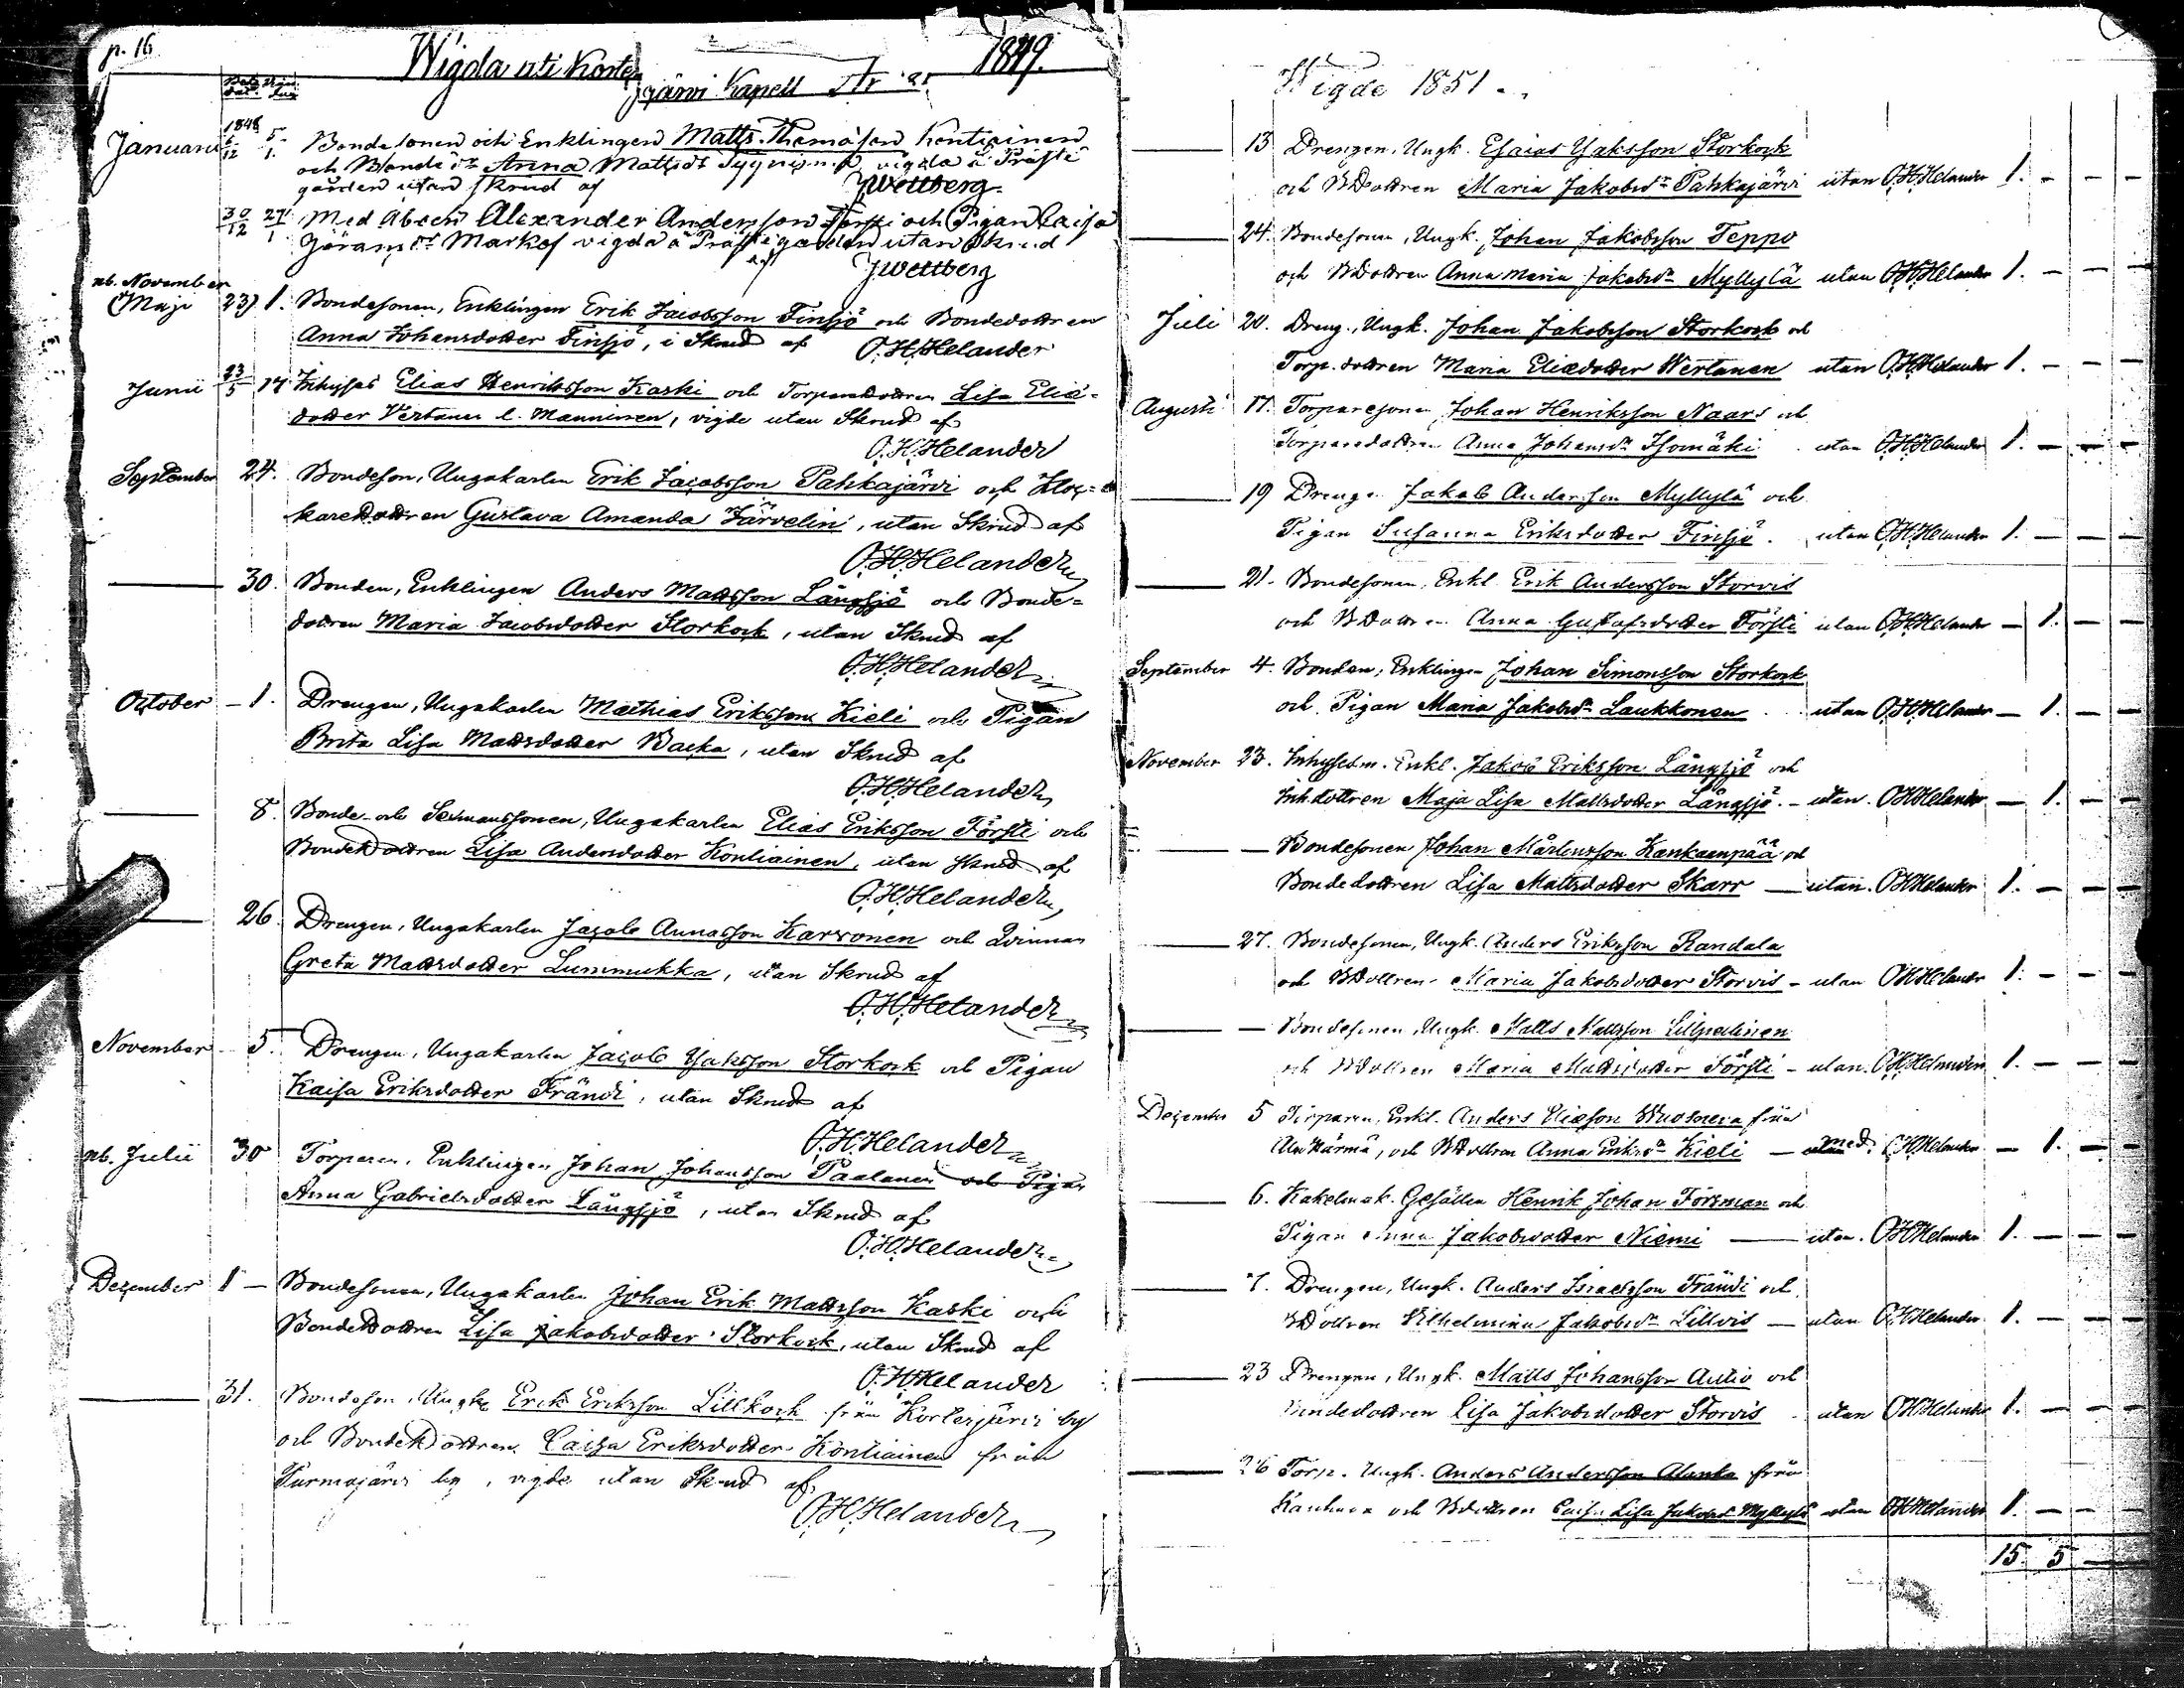 p. 16
Wigda uti Kortes
järvi Kapell År 1849.
Januari 1848 6/12 5/1. Bondesonen och Enklingen Matts Thomasson Kontiainen
och Bondedr Anna Mattsdr vigda i Präste
gården utan skrud af JWettberg
30/12 27/1 Alexander Andersson och Pigan Caisa
Göransdr Markos vigda i Prästegården utan Skrud
af JWettberg
nb. November
(Maji 23) 1. Bondesonen, Enklingen Erik Jacobsson Finsjö och Bondedottren
Anna Johansdotter Finsjö, i Skrud af O.H.Helander
Junii 23/5 17 Inhyses Elias Henriksson Kaski och Torparedottren Lisa Eliæ-
dotter Vertanen l. Manninen, vigde utan Skrud af
O.H.Helander
September 24. Bondeson, Ungakarlen Erik Jacobsson Pahkajärvi och Kloc-
karedottren Gustava Amanda Järvelin, utan Skrud af
O.H.Helander
30. Bonden, Enklingen Anders Mattsson Långsjö och Bonde-
dottren Maria Jacobsdotter Storkock, utan Skrud af
O.H.Helander
October 1. Drengen, Ungakarlen Mathias Eriksson Kieli och Pigan
Brita Lisa Mattsdotter Backa, utan Skrud af
O.H.Helander
8. Bonde- och Sexmanssonen, Ungakarlen Elias Eriksson Försti och
Bondedottren Lisa Andersdotter Kontiainen, utan Skrud af
O.H.Helander
26. Drengen, Ungakarlen Jacob Annasson Karvonen och Qvinnan
Greta Mattsdotter Lummukka, utan Skrud af
O.H.Helander
November 5. Drengen, Ungakarlen Jacob Isaksson Storkock och Pigan
Kaisa Eriksdotter Frändi, utan Skrud af
O.H.Helander
nb. Julii 30 Torparen, Enklingen Johan Johansson Paalanen och Pigan
Anna Gabrielsdotter Långsjö, utan Skrud af
O.H.Helander
Dezember 1 Bondesonen, Ungakarlen Johan Erik Mattsson Kaski och
Bondedottren Lisa Jakobsdotter Storkock, utan Skrud af
O.H.Helander
31. Bondeson, Ungk. Erik Eriksson Lillkock från Kortesjärvi by
och Bondedottren Caisa Eriksdotter Kontiainen från
Purmojärvi by, vigde utan Skrud af
O.H.Helander
Wigde 1851
13 Drengen, Ungk. Esaias Isaksson Storkock
och BDottren Maria Jakobsdr Pahkajärvi utan O.H.Helander 1. - - -
24. Bondesonen, Ungk. Johan Jakobsson Teppo
och BDottren Anna Maria Jakobsdr Myllylä utan O.H.Helander 1. - - -
Juli 20. Dreng., Ungk. Johan Jakobsson Storkock och
Torp. dottren Maria Eliædotter Wertanen utan O.H.Helander 1. - -
Augusti 17. Torparesonen Johan Henriksson Naars och
Torparedottren Anna Johansdr Isomäki utan O.H.Helander 1. - - -
19 Drengen Jakob Andersson Myllylä och
Pigan Susanna Eriksdotter Finsjö. utan O.H.Helander 1. - - -
21. Bondesonen, Enkl. Erik Andersson Storvis
och BDottren Anna Gustafsdotter Försti utan O.H.Helander - 1. - -
September 4. Bonden, Enklingen Johan Simonsson Storkock
och Pigan Maria Jakobsdr Laukkonen utan O.H.Helander - 1. - -
November 23. Inhysesm. Enkl. Jakob Eriksson Långsjö och
Inh.dottren Maja Lisa Mattsdotter Långsjö. - utan. O.H.Helander - 1. - -
Bondesonen Johan Mårtensson Kankaanpää och
Bondedottren Lisa Mattsdotter Skarr - utan. O.H.Helander 1. - - -
27. Bondesonen, Ungk. Anders Eriksson Randala
och BDottren Maria Jakobsdotter Storvis - utan O.H.Helander 1. - - -
Bondesonen, Ungk. Matts Mattsson
och BDottren Maria Mattsdotter Försti - utan. O.H.Helander 1. - - -
Dezember 5 Torparen, Enkl. Anders Eliæson från
Härmä, och BDottren Anna Eriksdr Kieli - med. O.H.Helander - 1. - -
6. Kakelmak. Gesällen Henrik Johan Forsman och
Pigan Anna Jakobsdotter Niemi - utan. O.H.Helander 1. - - -
7. Drengen, Ungk. Anders Israelsson Frändi och
BDottren Wilhelmina Jakobsdr Lillvis - utan O.H.Helander 1. - - -
23 Drengen, Ungk. Matts Johansson Autio och
Bondedottren Lisa Jakobsdotter Storvis utan O.H.Helander 1. - - -
26 Torp. Ungk. Anders Andersson Alanko från
Kauhava och BDottren Caisa Lisa Jakobsd. Myllylä utan O.H.Helander 1. - - -
15 5 -